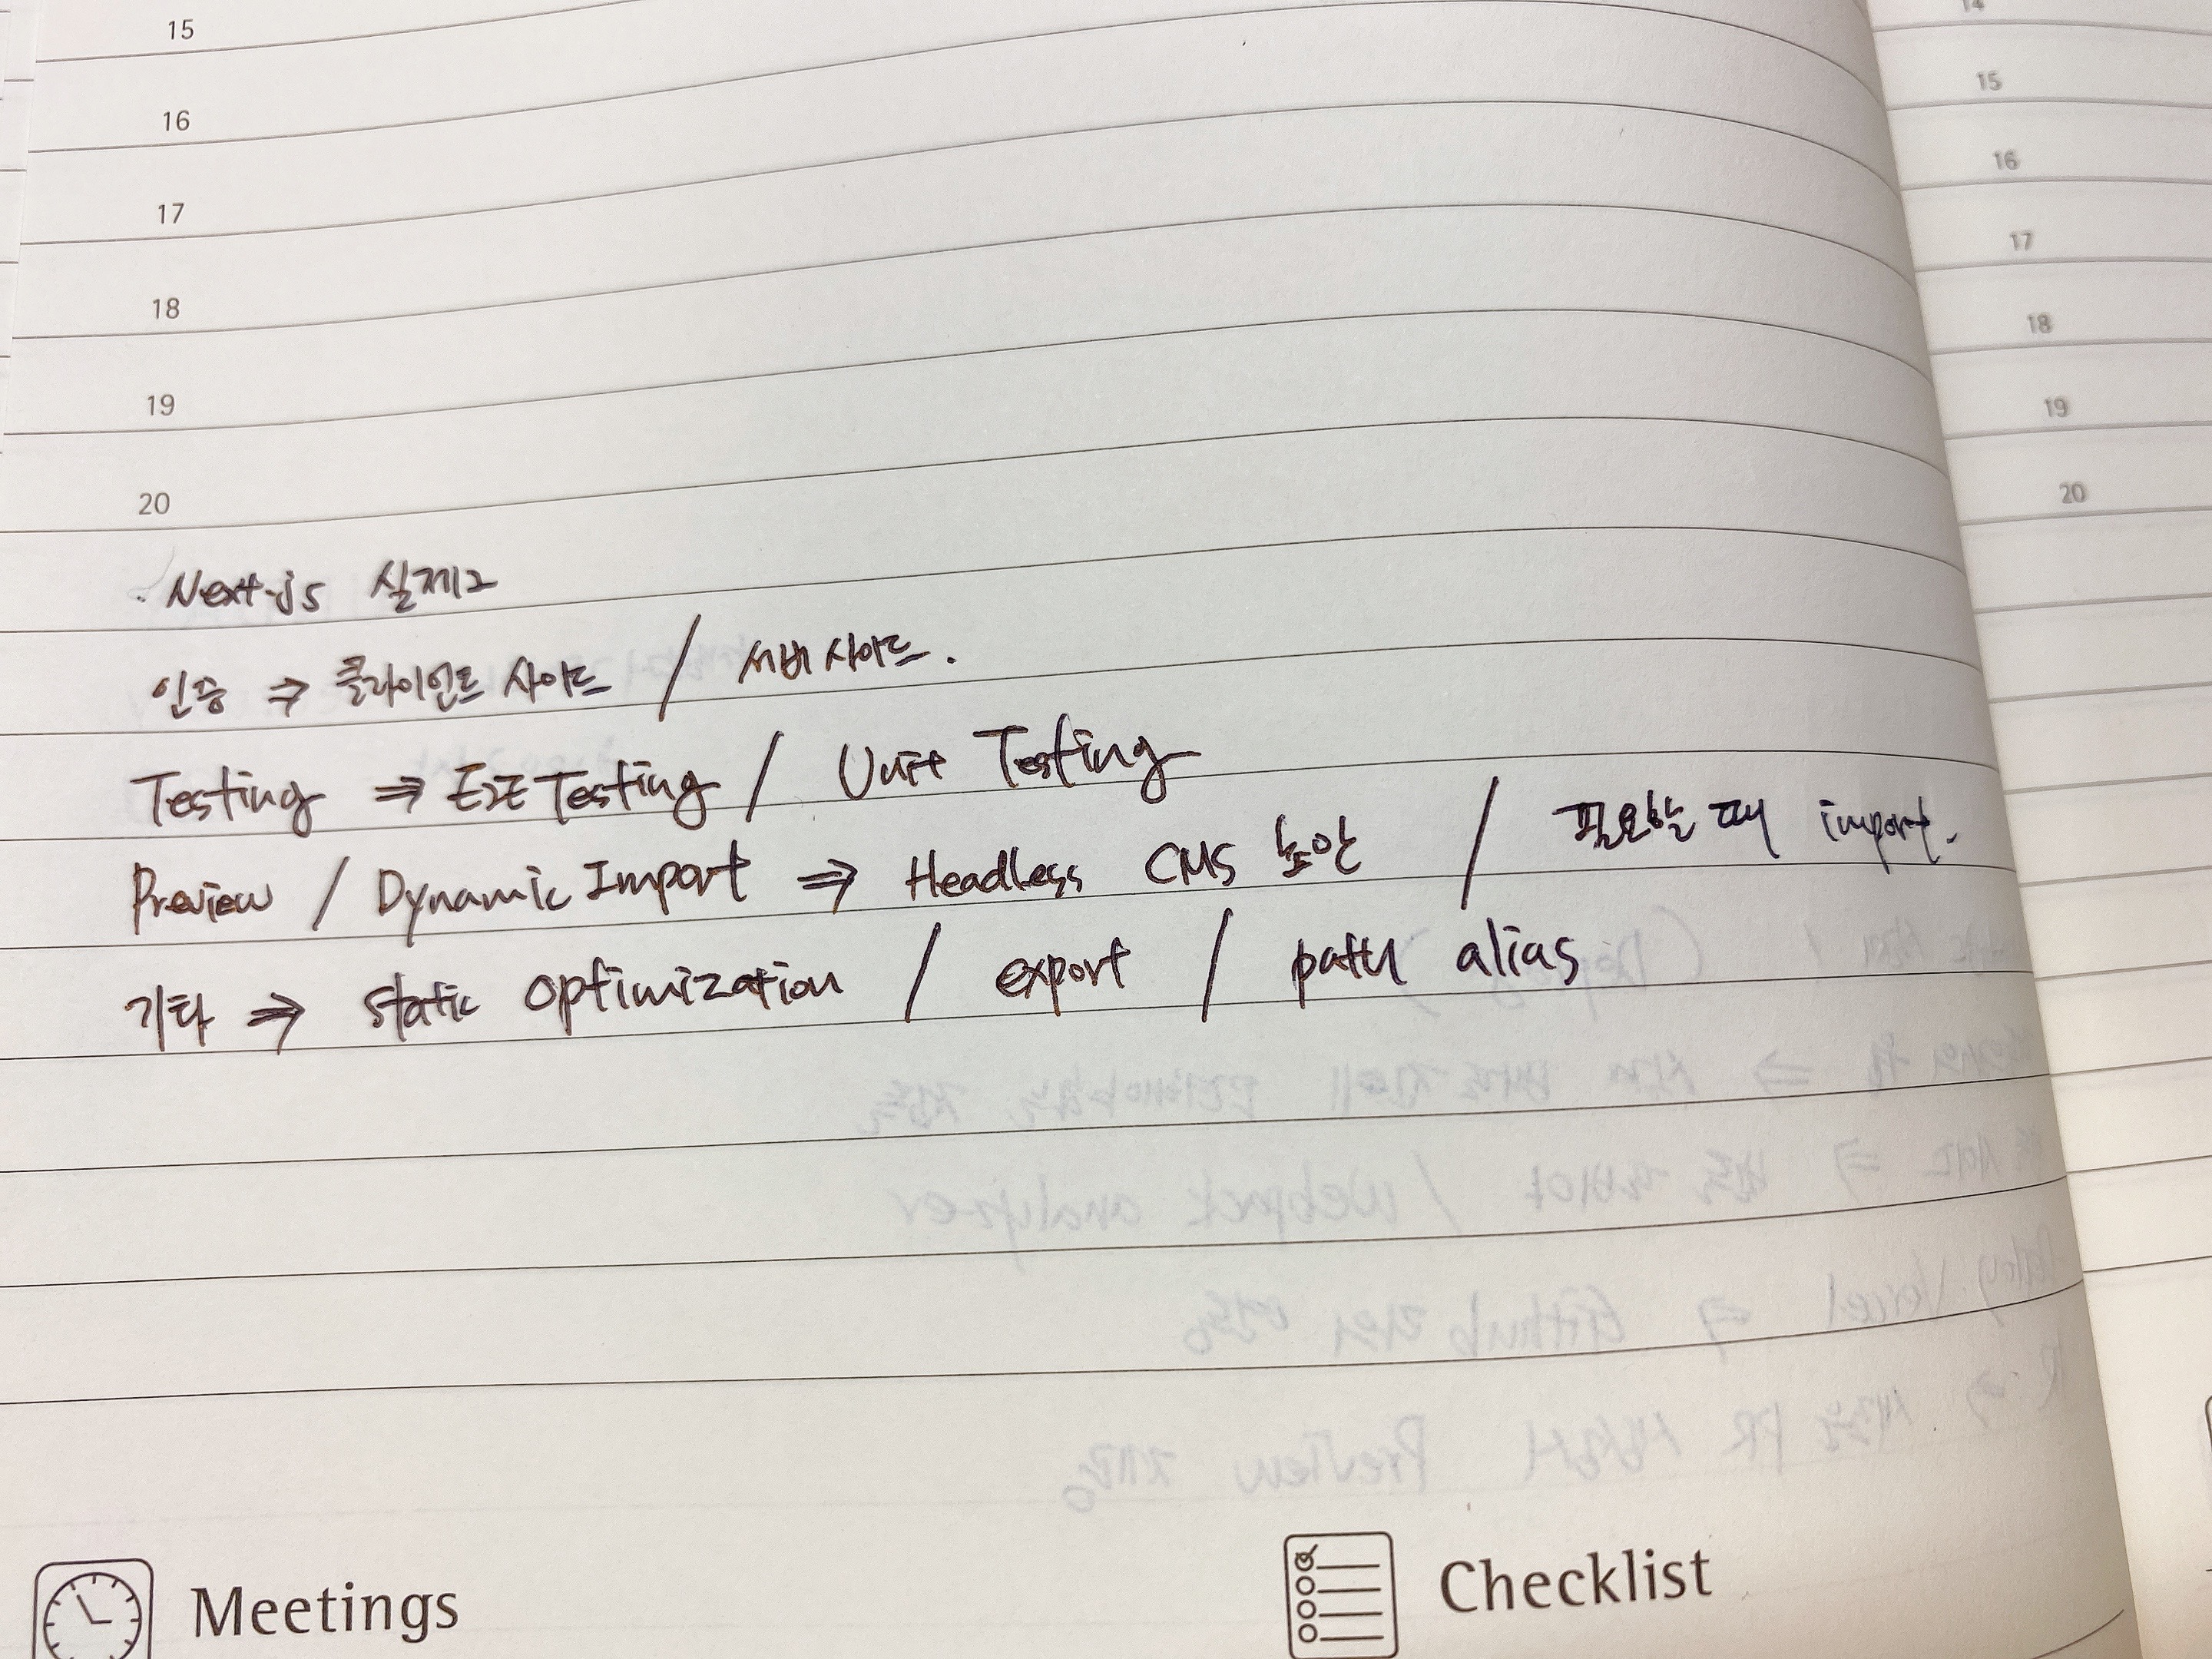 15
16
17
18
19
20
. Next.js 실제2
인증 ⇒ 클라이언트 사이드 / 서버 사이드.
Testing ⇒ E2E Testing / Unit Testing
Preview / Dynamic Import ⇒ Headless CMS 보안 / 필요할 때 import.
기타 ⇒ static optimization / export / path alias
Meetings
Checklist
14
15
16
17
18
19
20